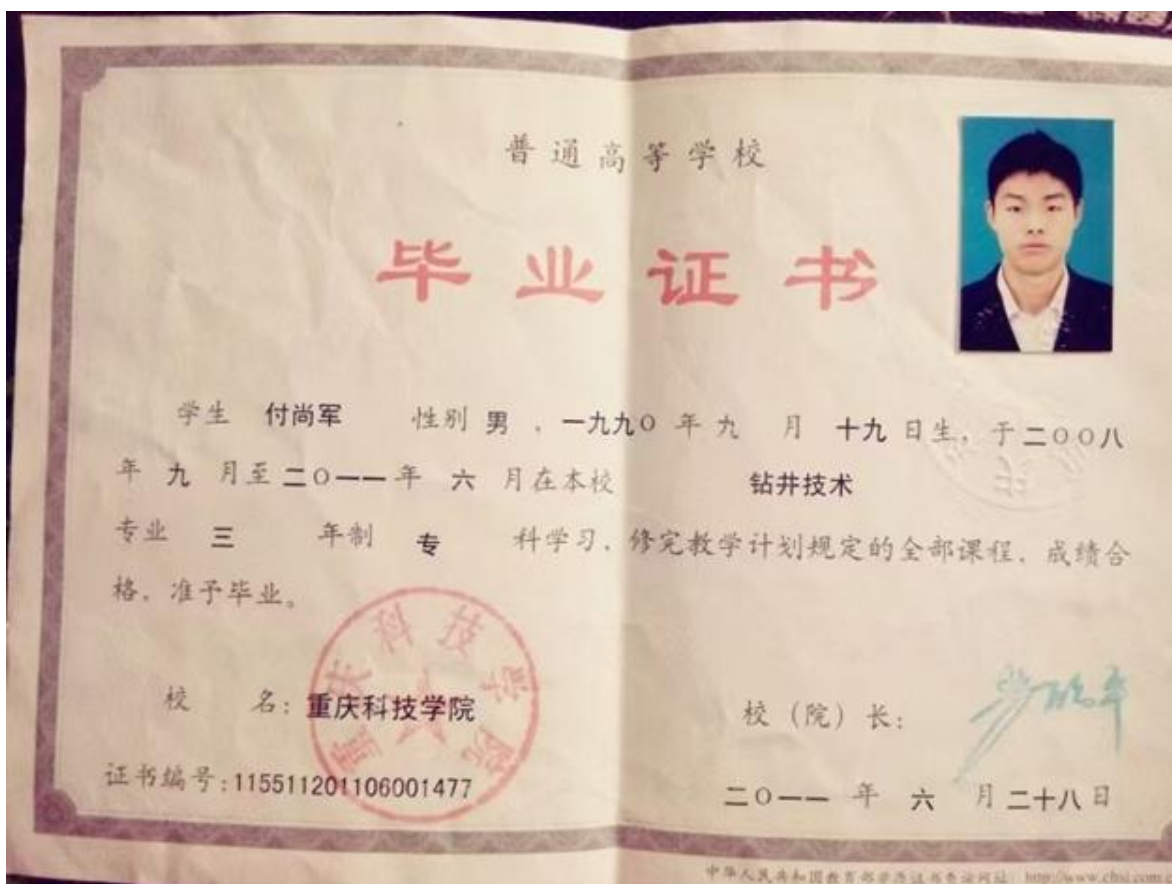 普通高等学校
毕业证书
学生 付尚军 性别 男 、一九九〇 年 九 月 十九 日生，于二〇〇八
年 九 月至 二〇一一 年 六 月在本校 钻井技术
专业 三 年制 专 科学习，修完教学计划规定的全部课程，成绩合
格，准予毕业。
重庆科技学院
校 名：重庆科技学院
校（院）长：
证书编号：115511201106001477
二〇一一 年 六 月 二十八 日
中华人民共和国教育部学历证书查询网址：http://www.chsi.com.c